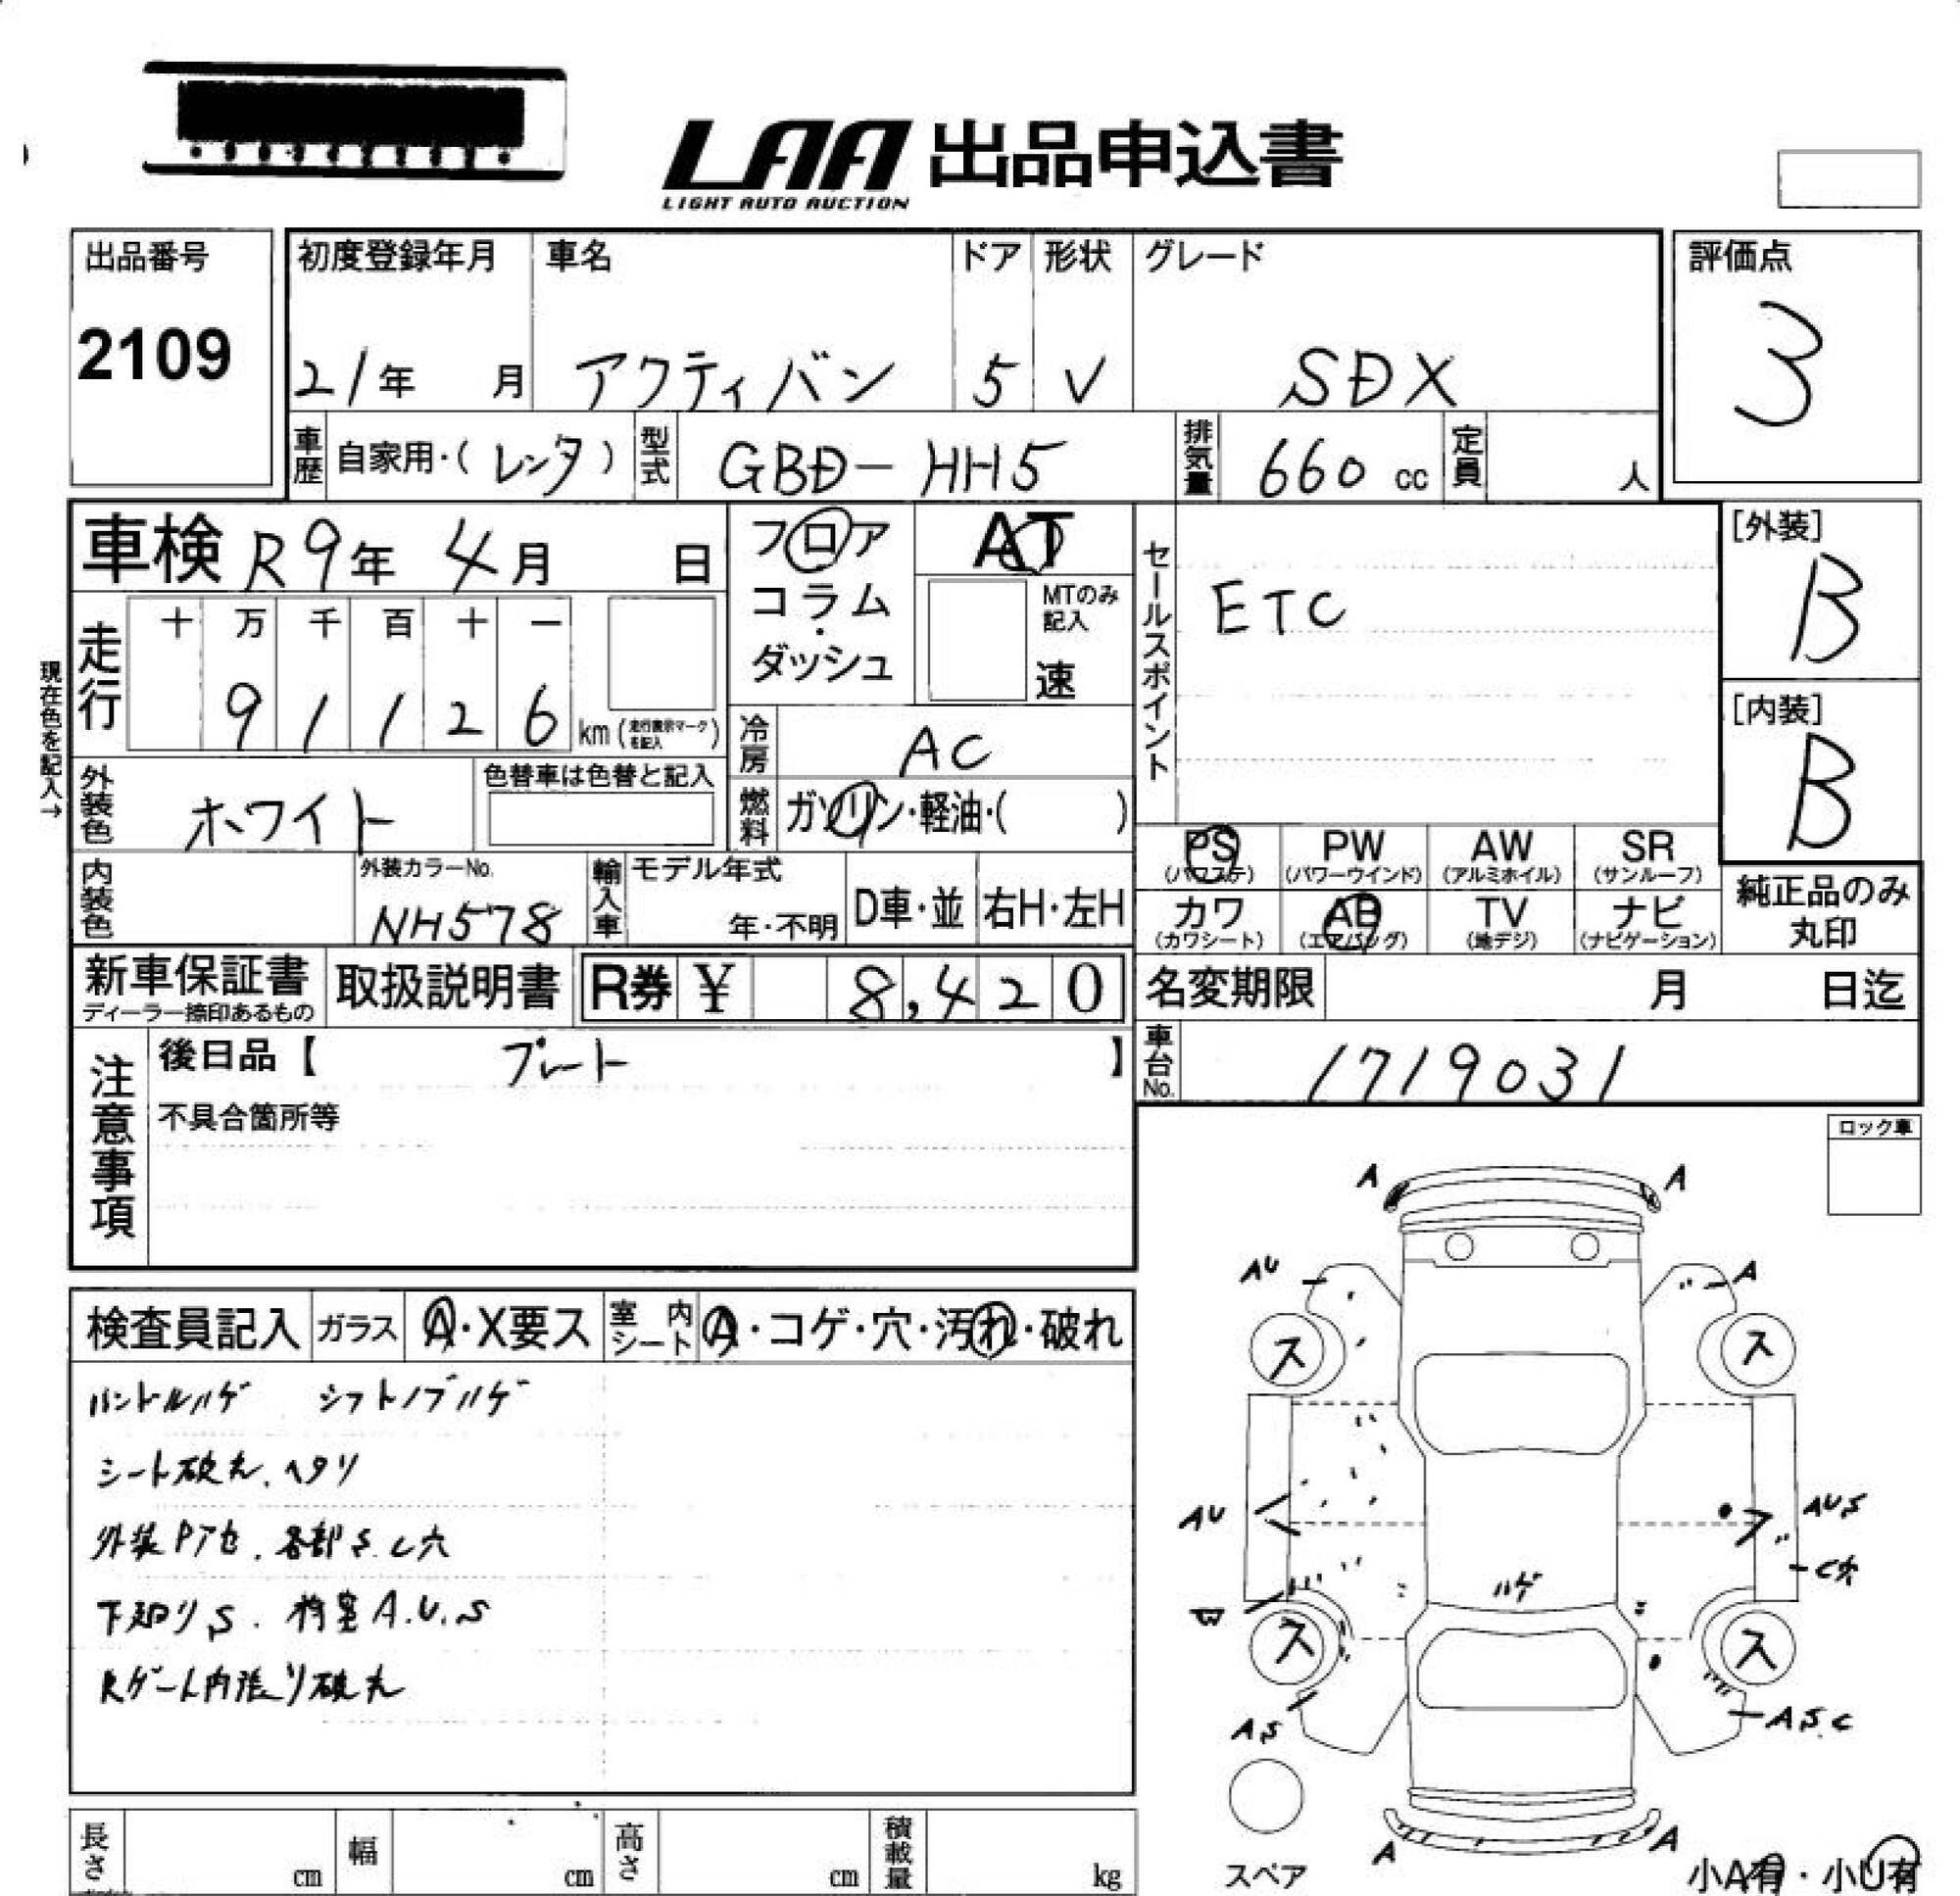 LAA 出品申込書
LIGHT AUTO AUCTION
出品番号
2109
初度登録年月
21年 月
車名
アクティバン
ドア
5
形状
V
グレード
SDX
評価点
3
車歴 自家用・( レンタ )
型式 GBD-HH5
排気量 660 cc
定員 人
車検 R9年 4月 日
走行
十 万 千 百 十 一
9 1 1 2 6 km (走行表示マークを記入)
現在色を記入→
フロア
コラム
・
ダッシュ
AT
MTのみ記入
速
冷房 AC
燃料 ガソリン・軽油・( )
セールスポイント
ETC
[外装]
B
[内装]
B
外装色 ホワイト
色替車は色替と記入
内装色
外装カラーNo.
NH578
輸入車
モデル年式
年・不明
D車・並
右H・左H
PS (パワステ)
PW (パワーウインド)
AW (アルミホイル)
SR (サンルーフ)
カワ (カワシート)
AB (エアバッグ)
TV (地デジ)
ナビ (ナビゲーション)
純正品のみ
丸印
新車保証書
ディーラー捺印あるもの
取扱説明書
R券 ¥ 8,420
名変期限 月 日迄
車台No. 1719031
注意事項
後日品【 プレート 】
不具合箇所等
ロック車
検査員記入
ガラス A・X要ス
室内シート A・コゲ・穴・汚れ・破れ
ハンドルハゲ シフトノブハゲ
シート破れ、ヘタリ
外装Pアセ、各部S.C穴
下廻りS.
A.U.S
Rゲート内張り破れ
A
A
AU
A
ス
ス
AU
AUS
C穴
W
ハゲ
ス
ス
AS
ASC
A
A
スペア
小A有・小U有
長さ cm
幅 cm
高さ cm
積載量 kg